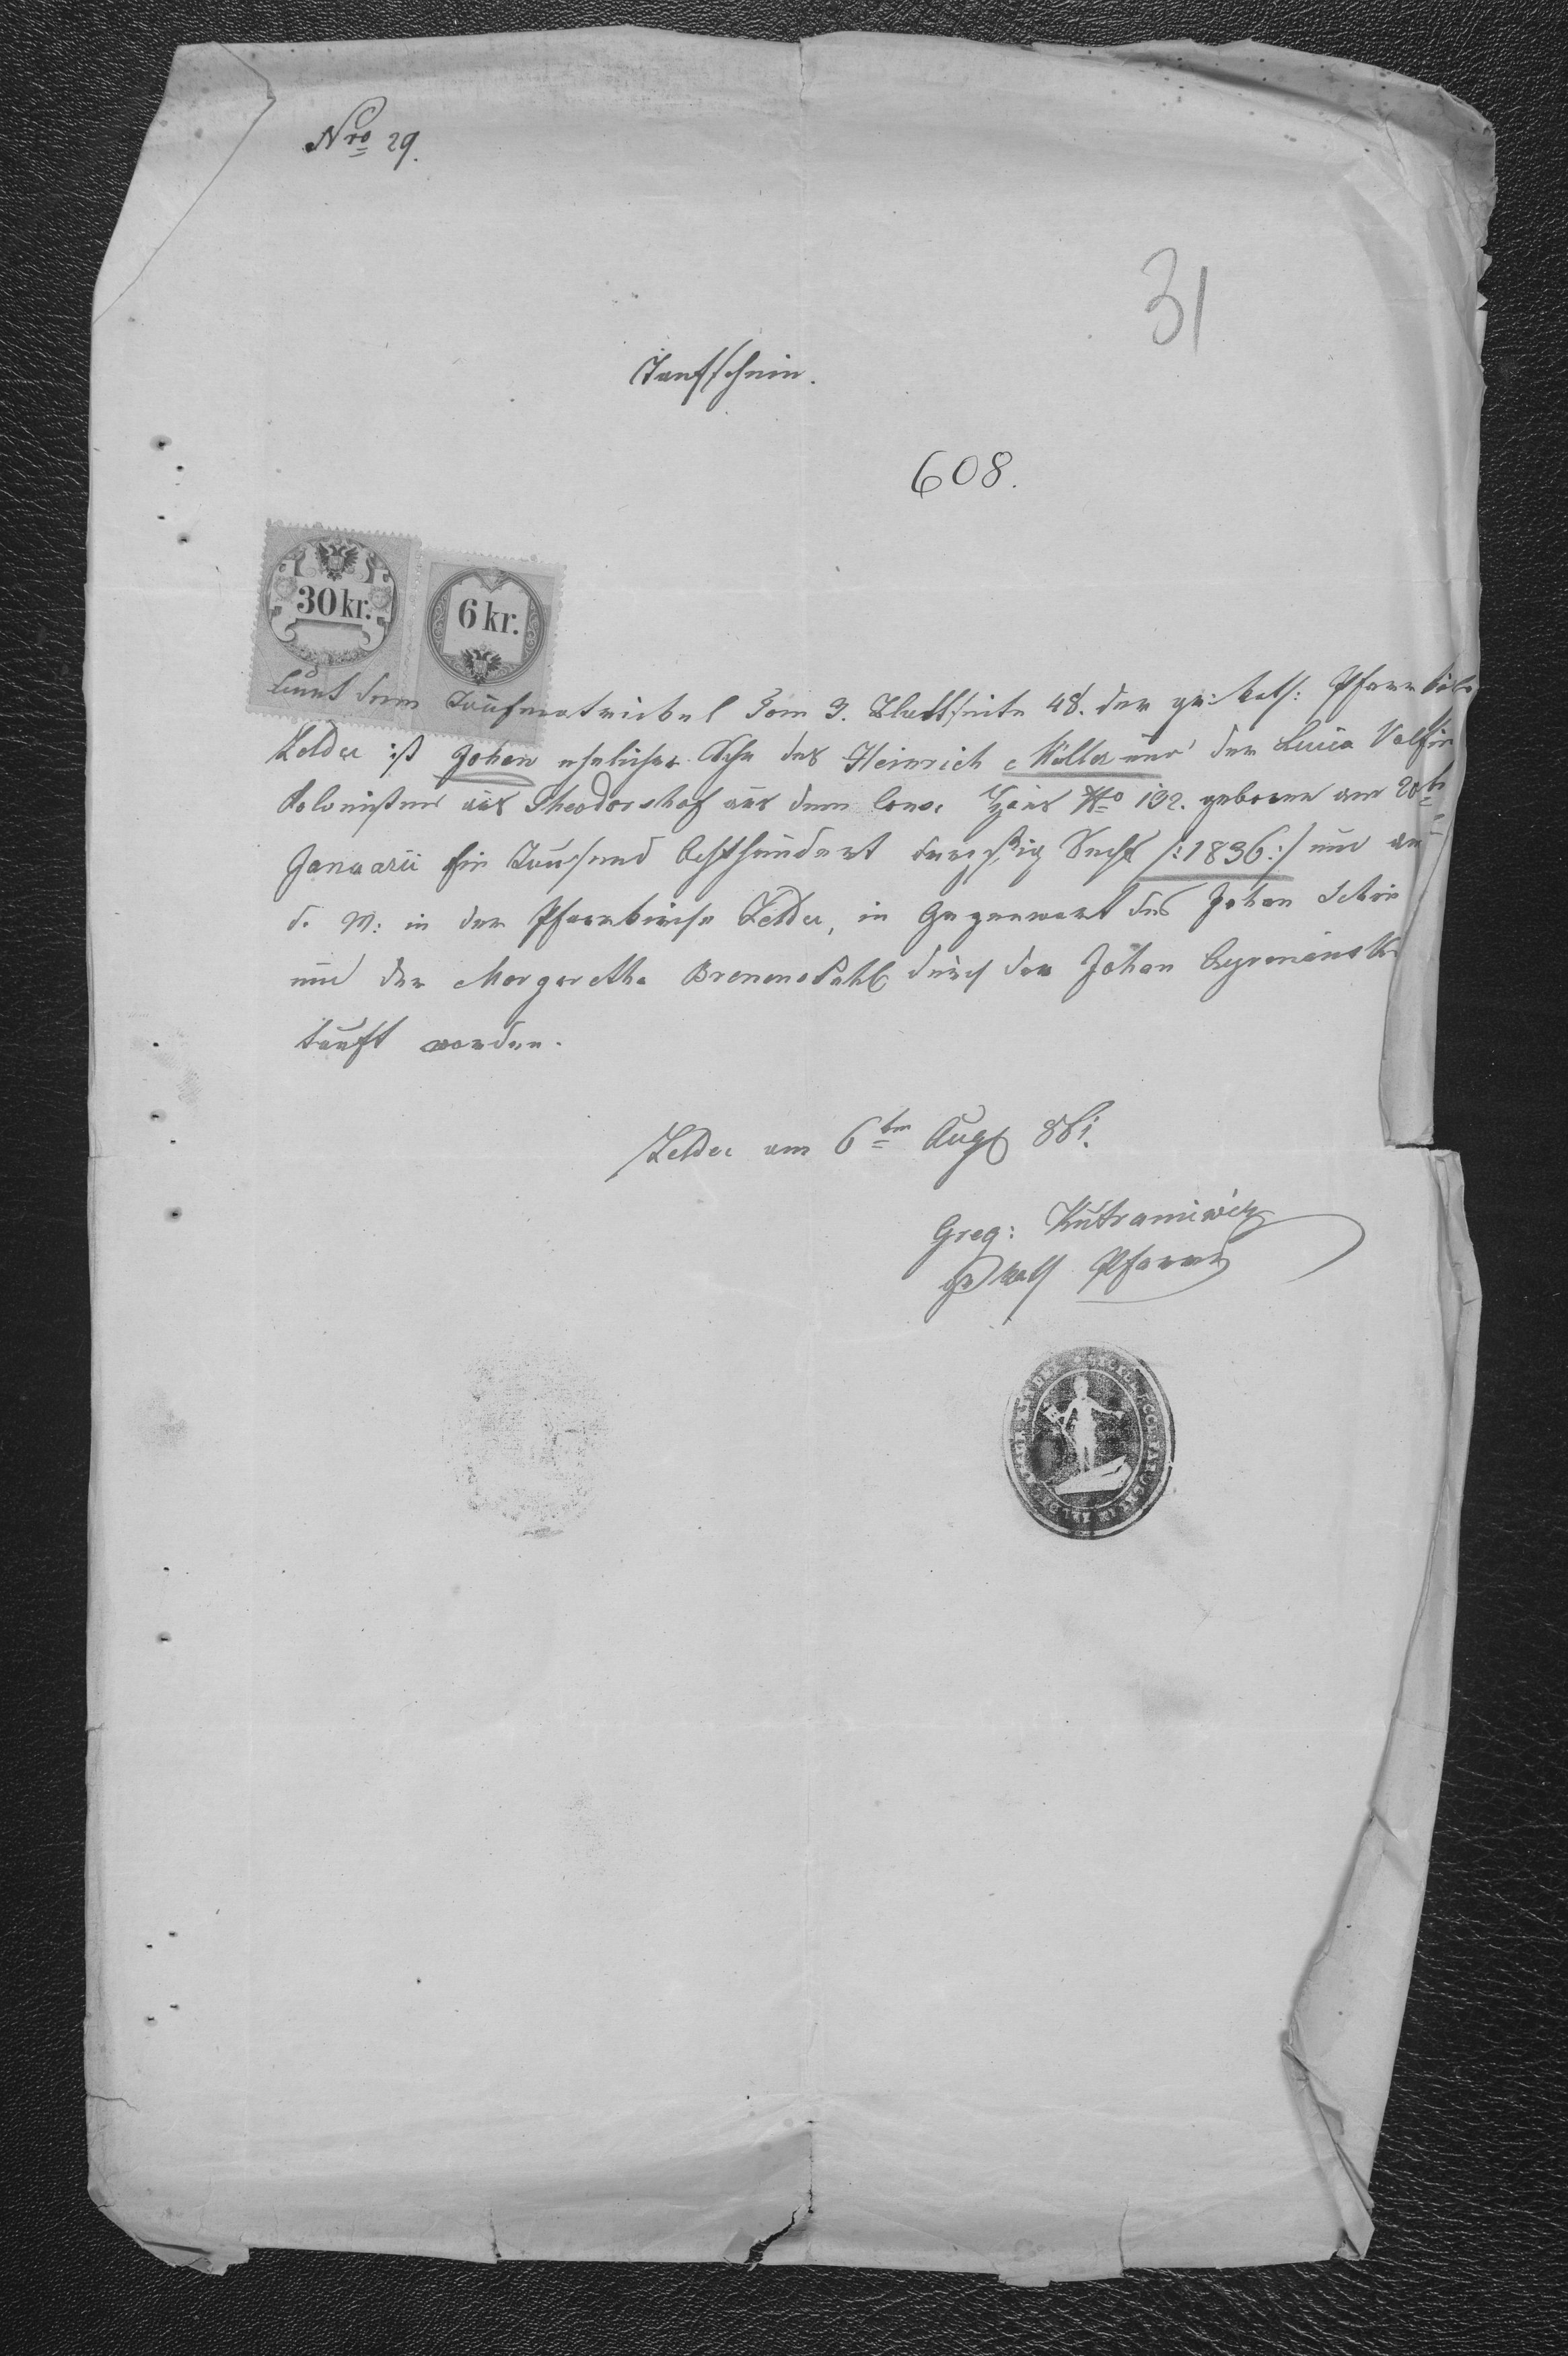 Nro 29.
31
Taufschein.
608.
30 kr.
6 kr.
Laut dem Taufmatrikel Tom 3. Blattseite 48. der gr: kath:
Zeldec ist Johan ehelicher Sohn des Heinrich Müller und der Lucia
Kolonisten aus Theodorshof aus dem Cons. Haus No 132. geboren am 20t
Januarii Ein Tausend Achthundert dreißig Sechs /:1836:/ und
d. M: in der Pfarrkirche Zeldec, in Gegenwart des Johan
und der Margaretha durch den Johan
tauft worden.
Zeldec am 6ten Aug 861.
Greg:
gr kath Pfarrer